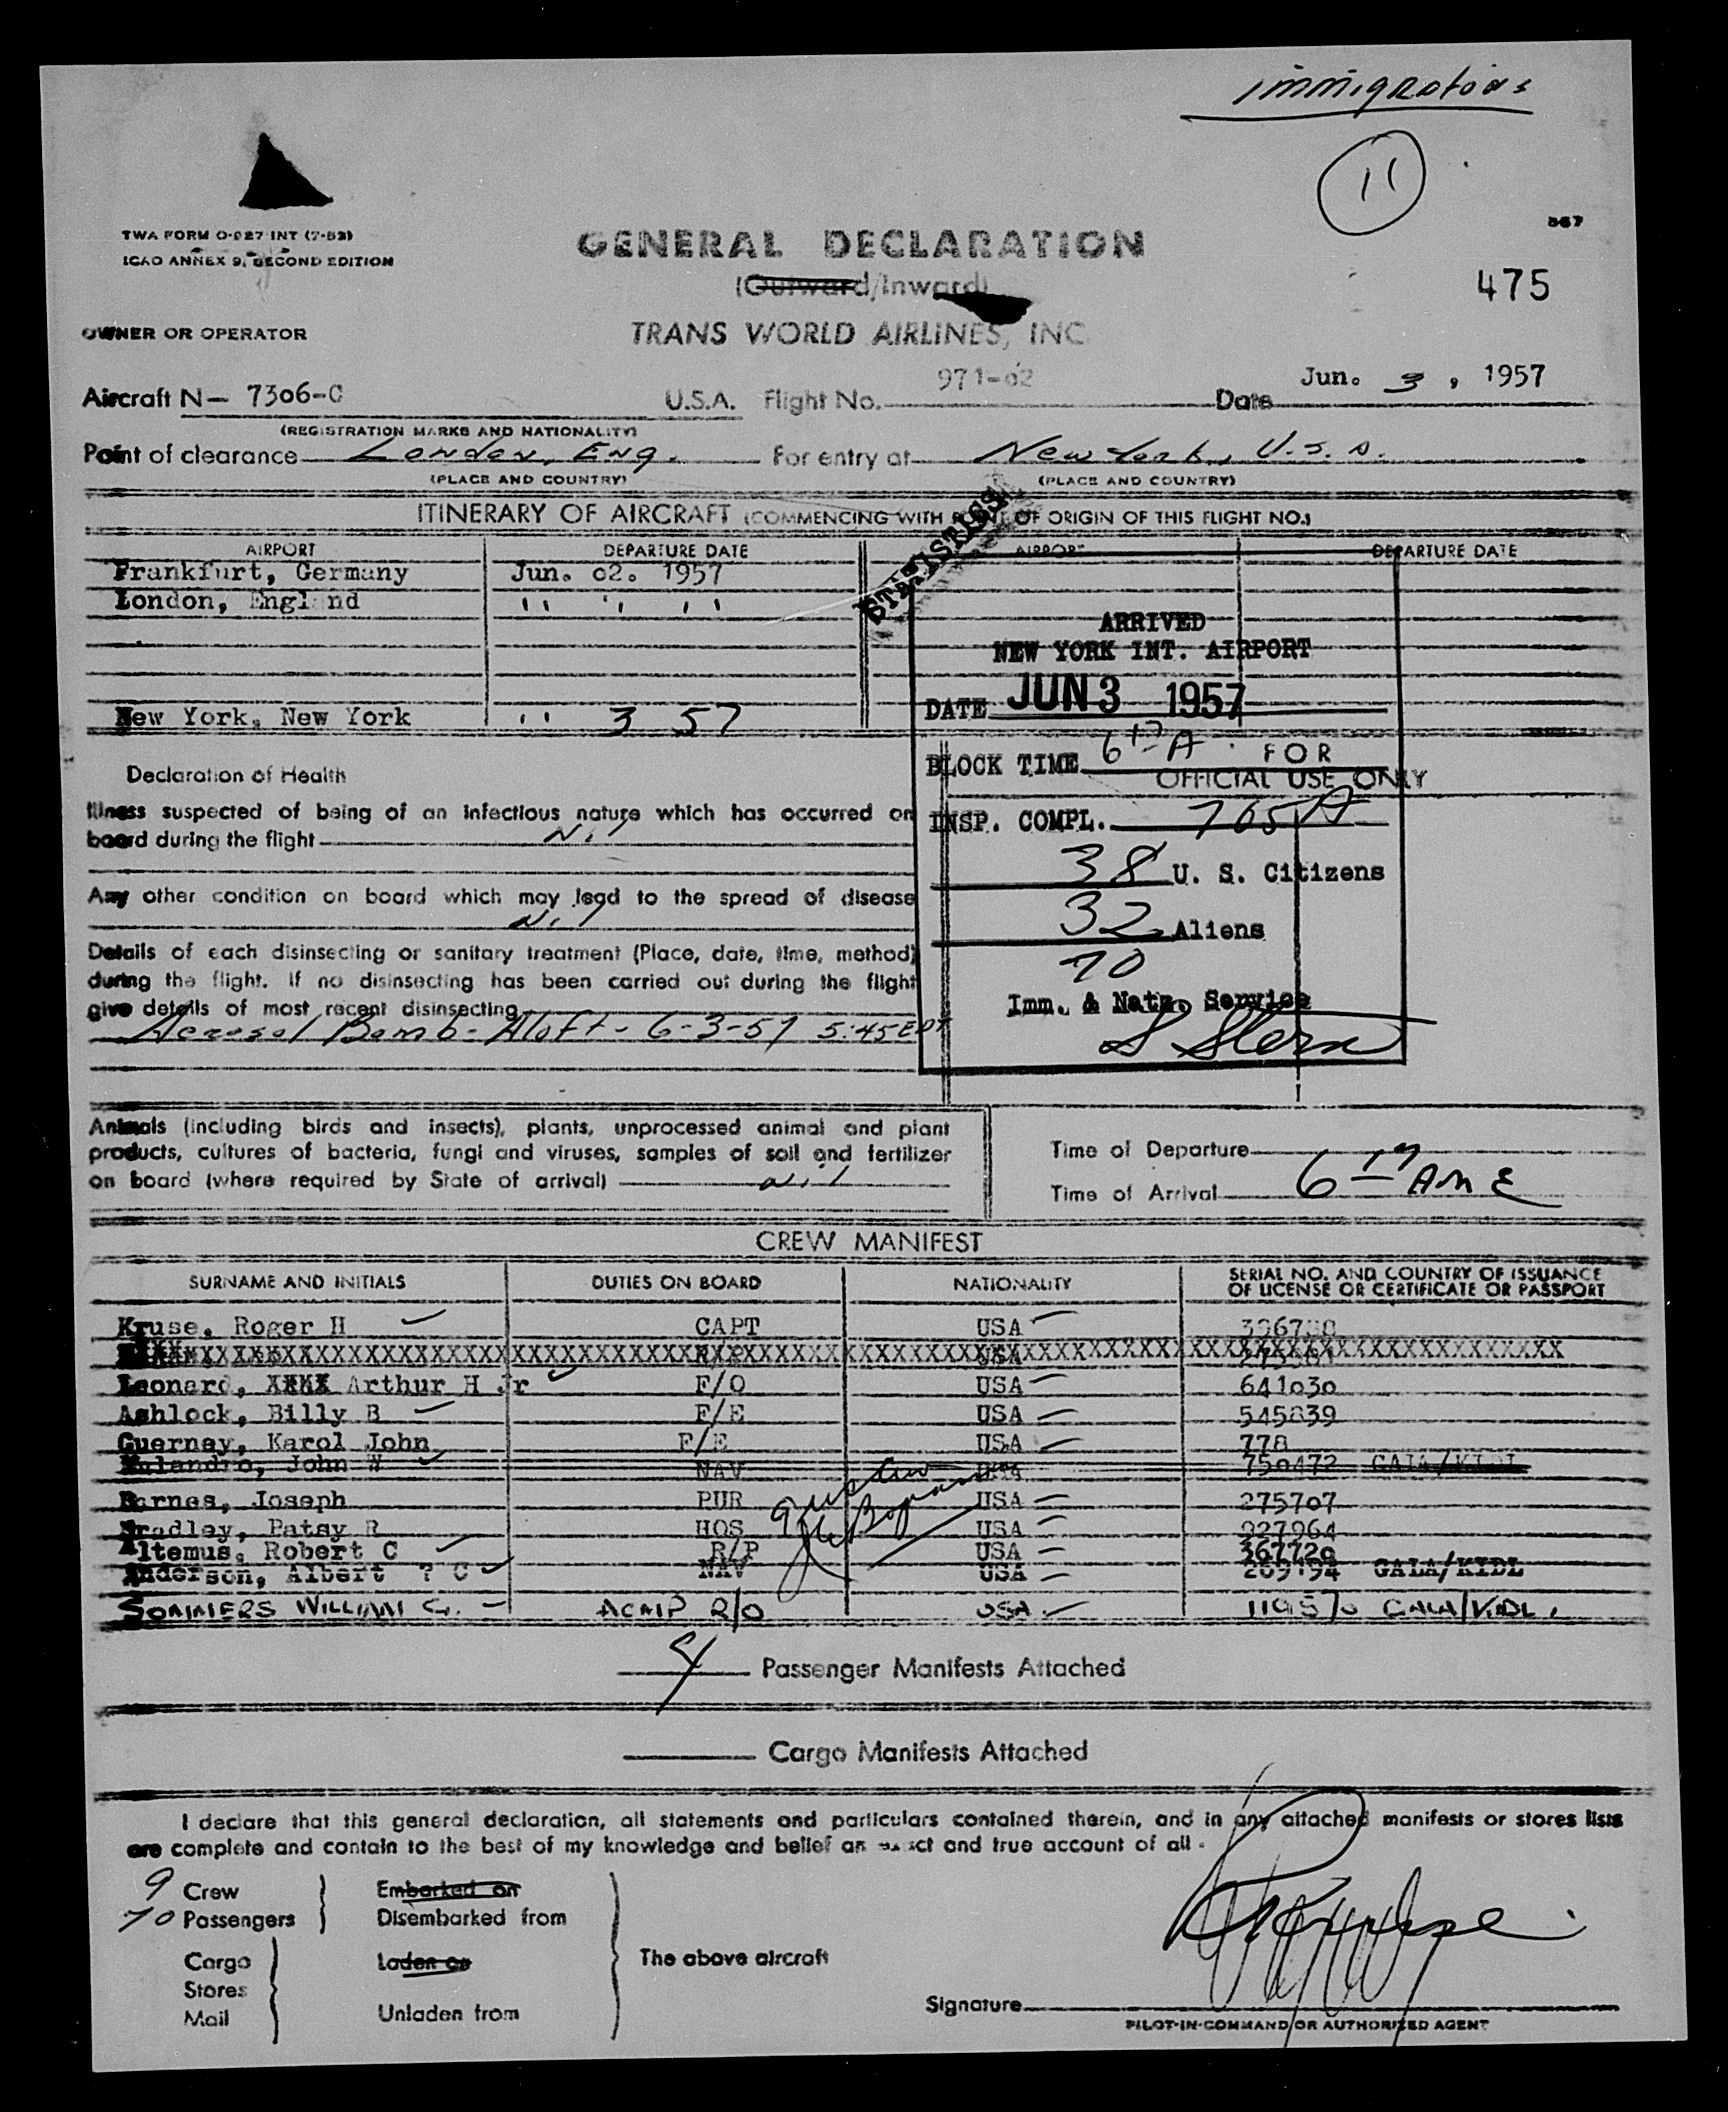 immigrations
11
TWA FORM O-927 INT (7-53)
ICAO ANNEX 9, SECOND EDITION
567
GENERAL DECLARATION
(Outward/Inward)
475
OWNER OR OPERATOR
TRANS WORLD AIRLINES, INC
Aircraft N- 7306-C U.S.A. Flight No. 971-02 Date Jun. 3, 1957
(REGISTRATION MARKS AND NATIONALITY)
Point of clearance London, Eng. For entry at New York, U.S.A.
(PLACE AND COUNTRY) (PLACE AND COUNTRY)
STATISTICS
ITINERARY OF AIRCRAFT (COMMENCING WITH POINT OF ORIGIN OF THIS FLIGHT NO.)
AIRPORT DEPARTURE DATE AIRPORT DEPARTURE DATE
Frankfurt, Germany Jun. 02. 1957
London, England " " " "
New York, New York " 3 57
ARRIVED
NEW YORK INT. AIRPORT
DATE JUN 3 1957
BLOCK TIME 6 17 A
FOR
OFFICIAL USE ONLY
INSP. COMPL. 705 A
38 U. S. Citizens
32 Aliens
70
Imm. & Natz. Service
S Stern
Declaration of Health
Illness suspected of being of an infectious nature which has occurred on
board during the flight Nil
Any other condition on board which may lead to the spread of disease
Nil
Details of each disinsecting or sanitary treatment (Place, date, time, method)
during the flight. If no disinsecting has been carried out during the flight
give details of most recent disinsecting
Aerosol Bomb - Aloft - 6-3-57 5:45 EDT
Animals (including birds and insects), plants, unprocessed animal and plant
products, cultures of bacteria, fungi and viruses, samples of soil and fertilizer
on board (where required by State of arrival) nil
Time of Departure
Time of Arrival 6 17 AM E
CREW MANIFEST
SURNAME AND INITIALS DUTIES ON BOARD NATIONALITY SERIAL NO. AND COUNTRY OF ISSUANCE
OF LICENSE OR CERTIFICATE OR PASSPORT
Kruse, Roger H CAPT USA
Leonard, XXXX Arthur H Jr F/O USA 641030
Ashlock, Billy B F/E USA 545839
Guernay, Karol John F/E USA 778
John W NAV USA 750472 GALA/KIDL
Barnes, Joseph PUR USA 275707
Bradley, Patsy R HOS USA 927964
Altemus, Robert C R/P USA 367720
Anderson, Albert ? C NAV USA 209194 GALA/KIDL
SOMMERS WILLIAM G. ACMP R/O USA GALA/KIDL
4 Passenger Manifests Attached
Cargo Manifests Attached
I declare that this general declaration, all statements and particulars contained therein, and in any attached manifests or stores lists
are complete and contain to the best of my knowledge and belief an exact and true account of all
9 Crew Embarked on
70 Passengers Disembarked from
Cargo Laden on The above aircraft
Stores
Mail Unladen from
Signature RKruse
PILOT-IN-COMMAND OR AUTHORIZED AGENT